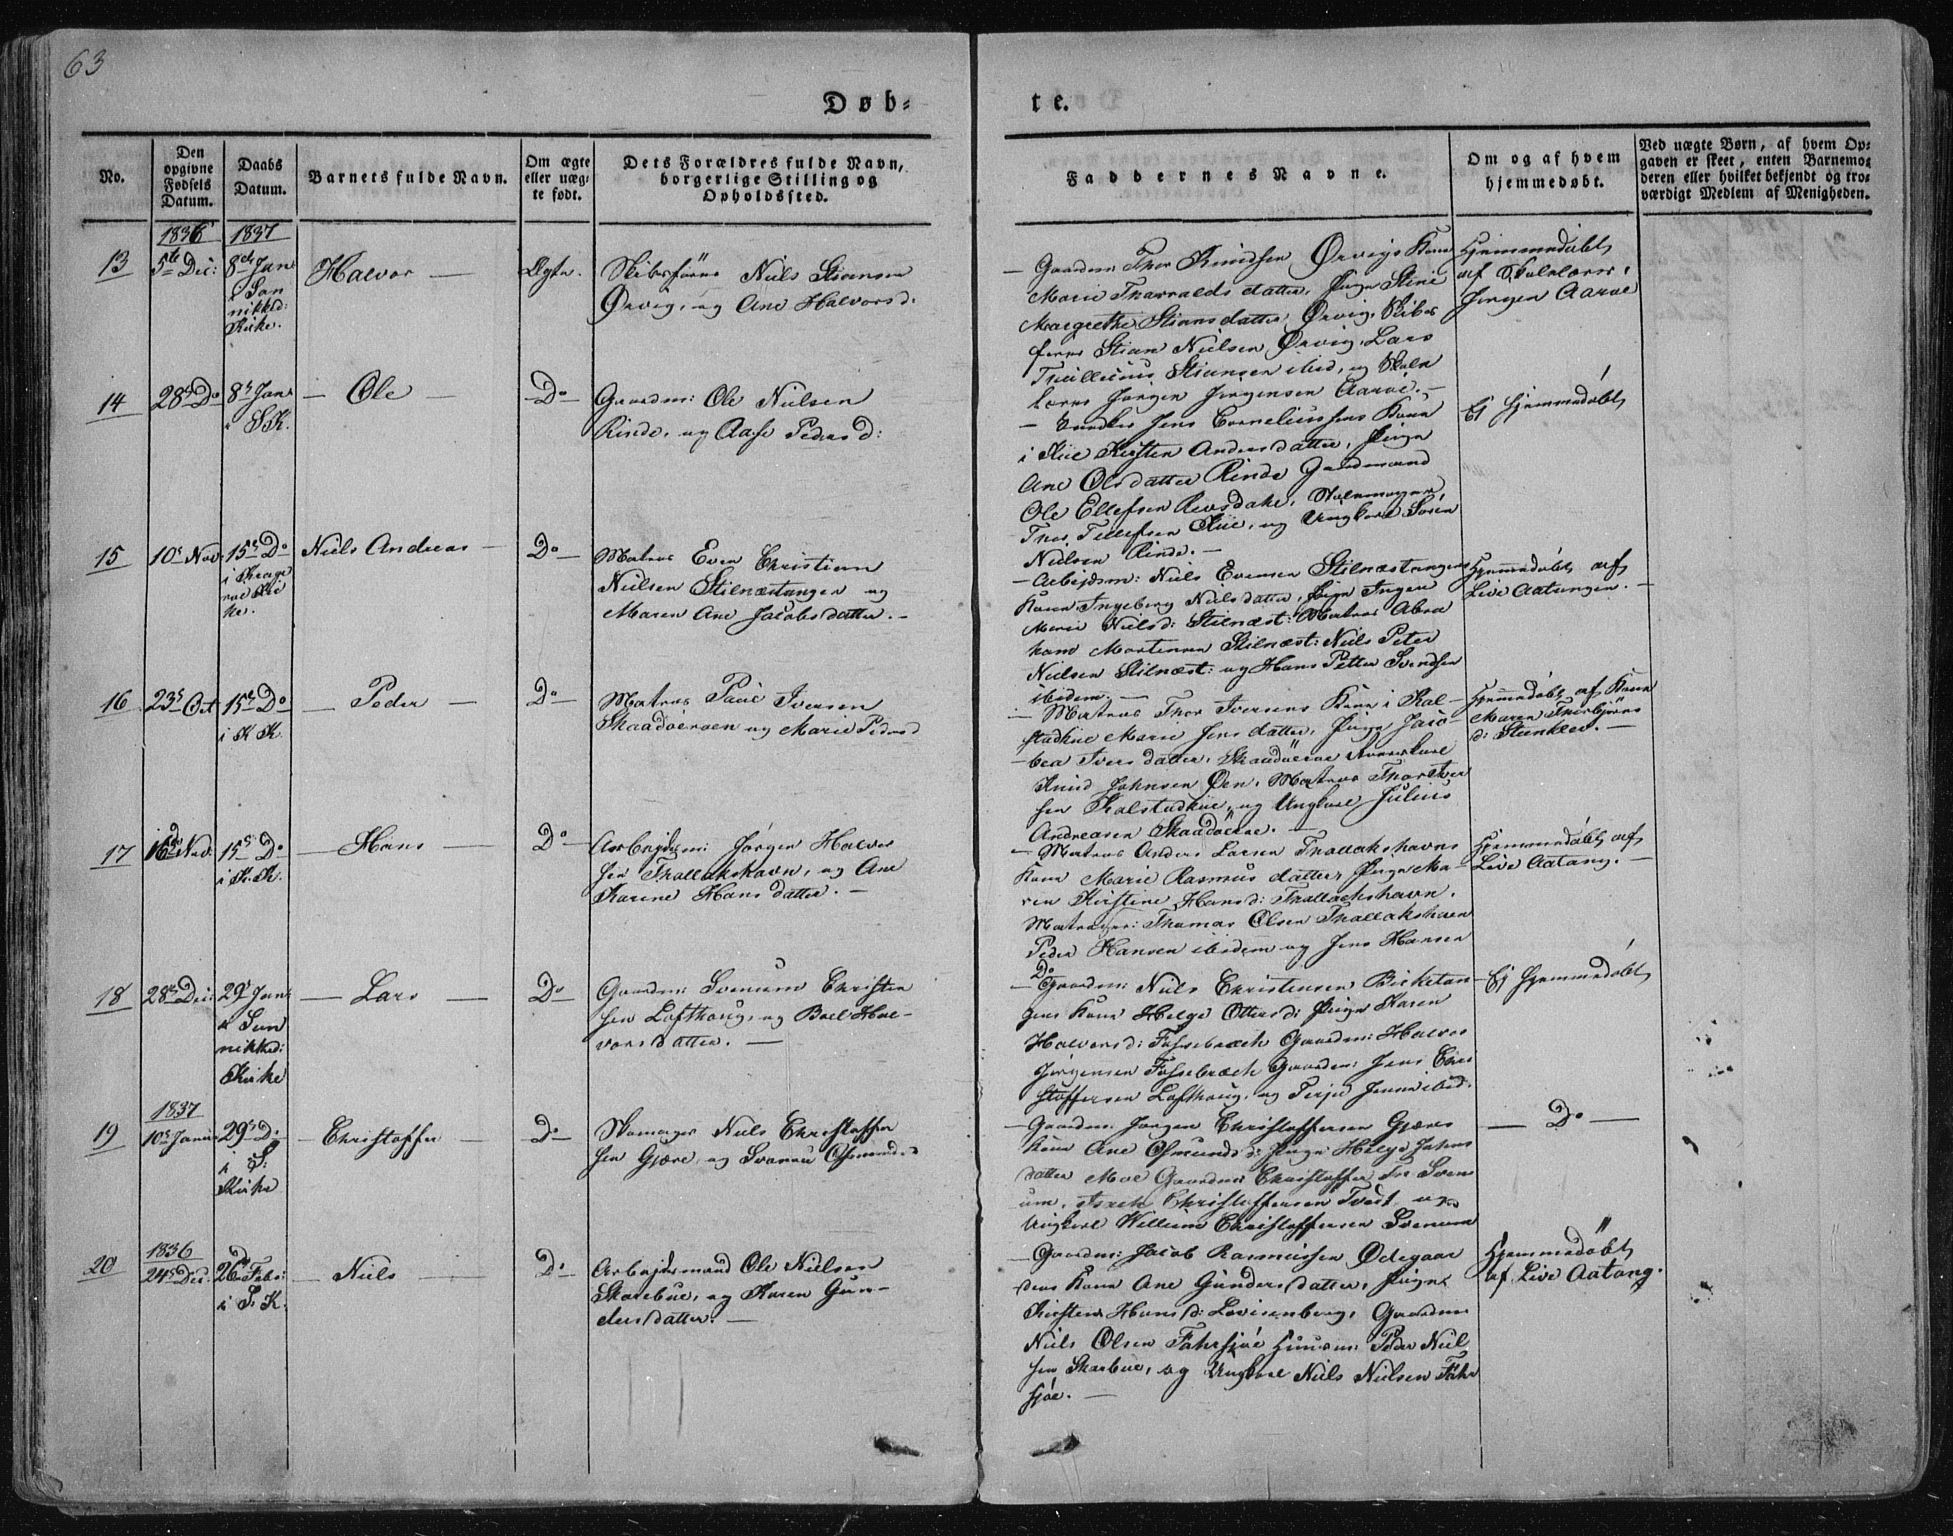 63
Døb=
te.
No.
Den opgivne Fødsels Datum.
Daabs Datum.
Barnets fulde Navn.
Om ægte eller uæg= te født.
Dets Forældres fulde Navn, borgerlige Stilling og Opholdssted.
Faddernes Navne.
Om og af hvem hjemmedøbt.
Ved uægte Børn, af hvem Op= gaven er skeet, enten Barnemo= deren eller hvilket bekjendt og tro= værdigt Medlem af Menigheden.
1836
1837
13
5te Dec:
8de Jan:
i San
nikked:
Kirke.
Halvor —
Ægte.
Skibsfører Niels Stiansen
Ørvig, og Ane Halvorsd:
— Gaardm: Thor Knudsen Ørvigs Kone
Marie Tharaldsdatter, Pige Stine
Margrethe Stiansdatter, Ørvig, Skibs
fører Stian Nielsen Ørvig, Lars
Stiansen ibid, og Skole
lærer Jørgen Jørgensen Aarøe. —
Hjemmedøbt
af Skolelærer
Jørgen Aarøe
14
28s Do
8s Jan:
i S. K.
— Ole —
Do
Gaardm: Ole Nielsen
Rinde, og Aase Pedersd:
— Jens Corneliussens Kone
i Kirsten Andersdatter, Pige
Ane Olsdatter Rinde Gaardmand
Ole Ellefsen
Thor Tellefsen og Ungkarl Søren
Nielsen Rinde. —
Ej hjemmedøbt
15
10s Nov:
15s Do
i Krage
røe Kir
ke.
Niels Andreas —
Do
Matros Even Christian
Nielsen Stilnæstangen og
Maren Ane Jacobsdatter. —
— Arbejdsm: Niels Evensen Stilnæstangens
Kone Ingeborg Nielsdatter, Pige Inger
Marie Nielsd: Stilnæst: Matros Abra
ham Mortensen Stilnæst: Niels Peter
Nielsen Stilnæst: og Hans Petter Svendsen
ibidem. —
Hjemmedøbt af
Live Aatangen. —
16
23s Oct
15s Do
i K K.
— Peder —
Do
Matros Paul Iversen
Skaadøeroen og Marie Pedersd
— Matros Thor Iversens Kone i Kal-
stadkile Marie Jensdatter, Pige Jaco-
bea Iversdatter, Skaadøeroe Ungkarl
Knud Johnsen Øen, Matros Thor Iver
sen Kalstadkile, og Ungkarl Julius
Andreasen Skaadøeroe. —
Hjemmedøbt af Kone
Maren Thorbjørns
d: Stenklev. —
17
16d Nov:
15s Do
i K. K.
— Hans —
Do
Arbejdsm: Jørgen Halvor
sen Thollakshavn, og Ane
Karine Hansdatter. —
— Matros Anders Larsen Thollakshavns
Kone Marie Rasmusdatter, Pige Ma-
ren Kirstine Hansd: Thollakshavn.
Matroser: Thomas Olsen Thollakshavn
Peder Hansen ibidem og Jens Hansen
Do
Hjemmedøbt af
Live Aatang. —
18
28s Dec:
29s Jan:
i San
nikked:
Kirke
— Lars —
Do
Gaardm: Svenum Christen
sen Lofthoug, og Boel Hal-
vorsdatter. —
— Gaardm: Niels Christensen Birketan
gens Kone Helge Ottersd: Pige Karen
Halvorsd: Fossebræk Gaardm: Halvor
Jørgensen Fossebræk Gaardm: Jens Chri
stoffersen Lofthoug, og Terje Jensen ibid:
Ej hjemmedøbt
1837
19
10s Januar
29s Do
i S:
Kirke
— Christoffer —
Do
Skomager Niels Christoffer
sen Gjære, og Svanau Osmundsd
— Gaardm: Jørgen Christoffersen Gjæres
Kone Ane Osmundsd: Pige Helje Johns
datter Moe Gaardm: Christoffer Sven
um, Isach Christoffersen Tvedt og
Ungkarl Willum Christoffersen Svenum
— Do —
1836
20
24s Dec:
26d Febr:
i S. K.
— Niels —
Do
Arbejdsmand Ole Nielsen
Skarebue, og Karen Gun-
dersdatter. —
— Gaardm: Jacob Rasmussen Ødegaar
dens Kone Ane Gundersdatter, Pige
Kirsten Hansd: Lovisenberg, Gaardm:
Niels Olsen Fahrsjøe Peder Niel
sen Skarbue, og Ungkarl Niels Nielsen Fahr
sjøe. —
Hjemmedøbt
af Live Aatang.